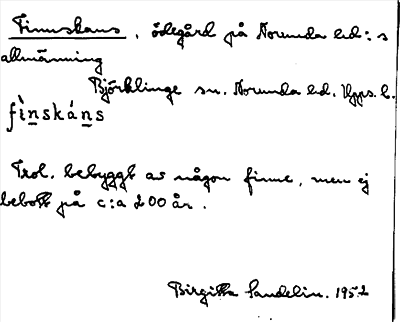 Finnskans, ödegård på Norunda hd:s
allmänning
Björklinge sn. Norunda hd. Upps. l.
fìnskáns
Trol. bebyggt av någon finne, men ej
bebott på c:a 200 år.
Birgitta Sandelin. 1952